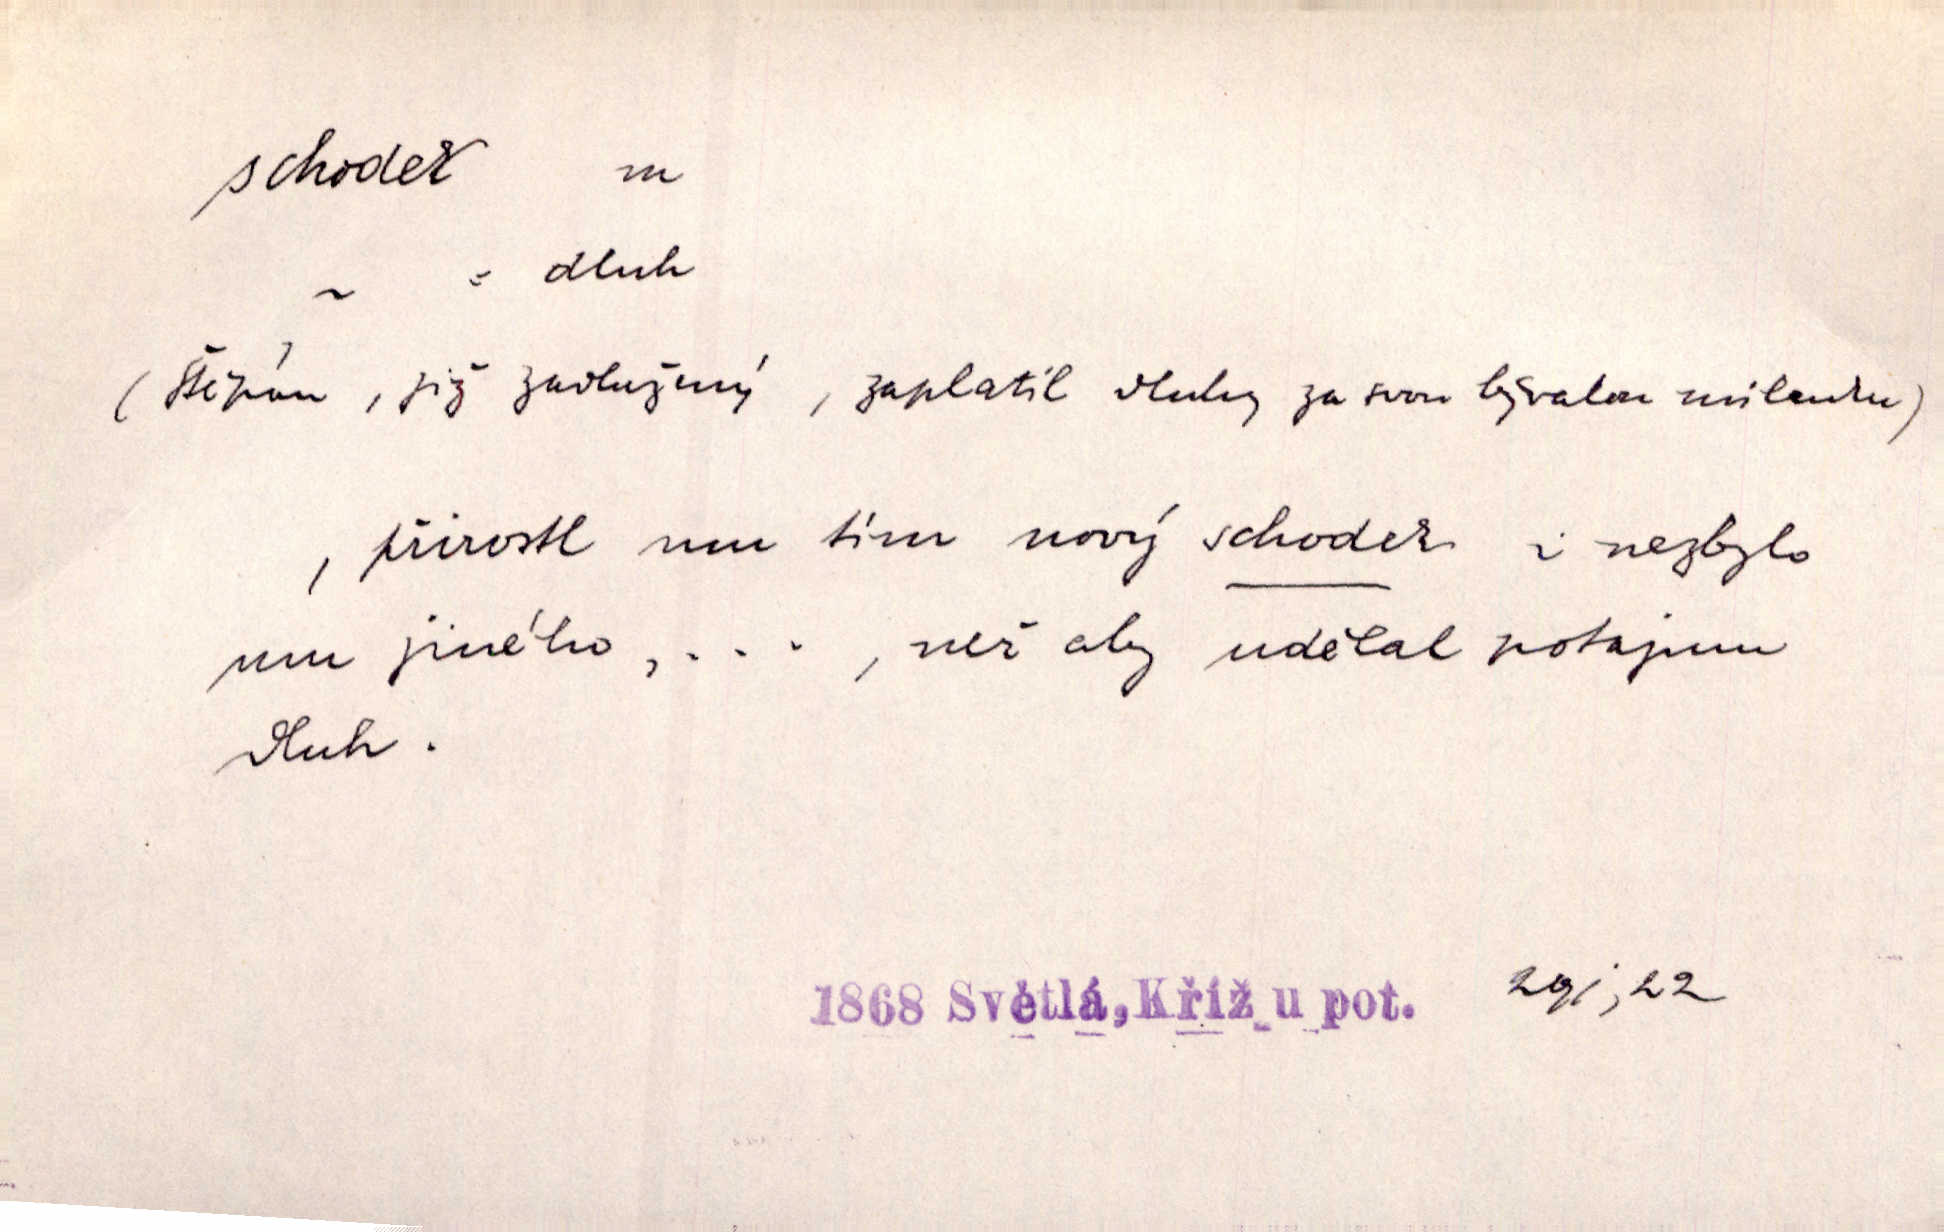 schodek m
~ = dluh
(Štěpán, již zadlužený, zaplatil dluhy za svou bývalou milenku)
, přirostl mu tím nový schodek i nezbylo
mu jiného, . . . , než aby udělal potajmu
dluh.
1868 Světlá, Kříž u pot. 22